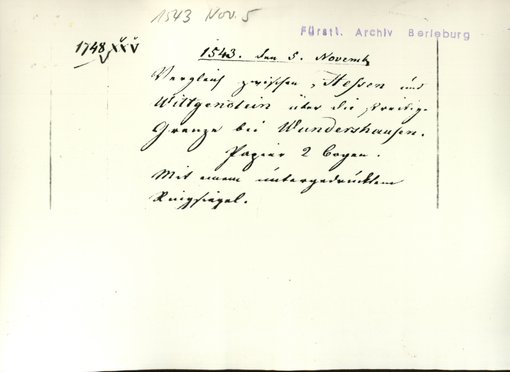 1543 Nov. 5
Fürstl. Archiv Berleburg
1748
1543. den 5. Novemb
Vergleich zwischen Hessen und
Wittgenstein über die streitige
Grenze bei Wundershausen.
Papier 2 Bogen.
Mit einem untergedrücktem
Ringsiegel.